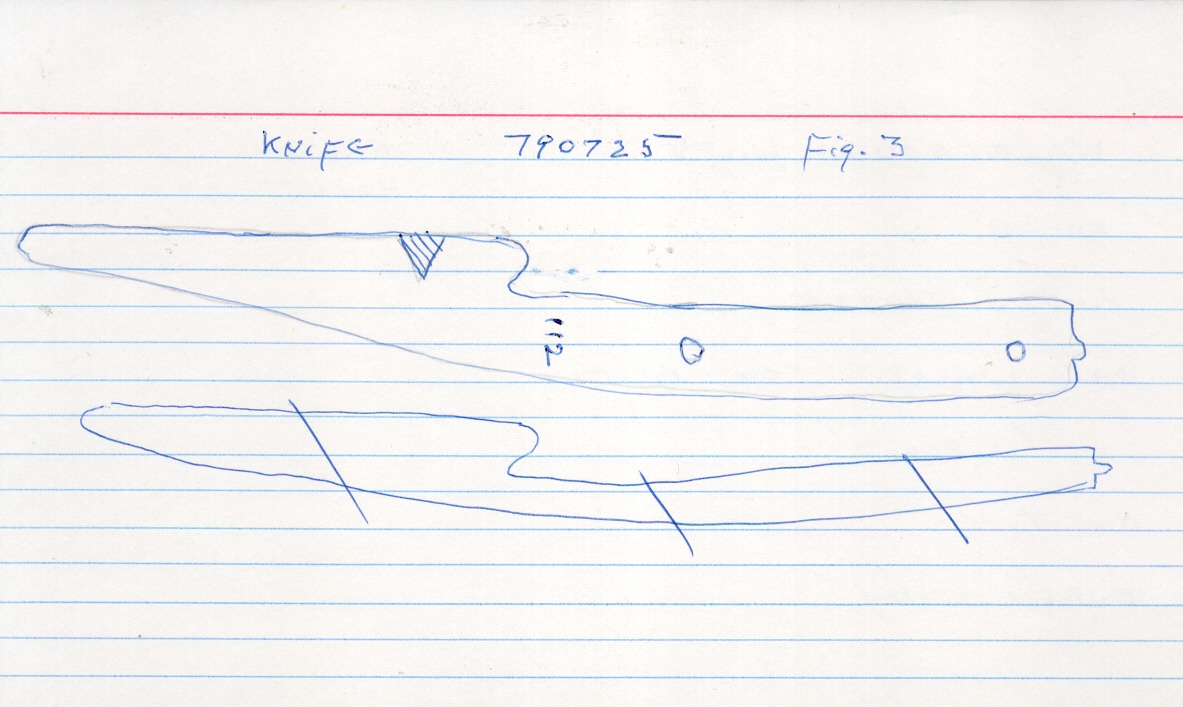 KNiFE 790725 Fig. 3